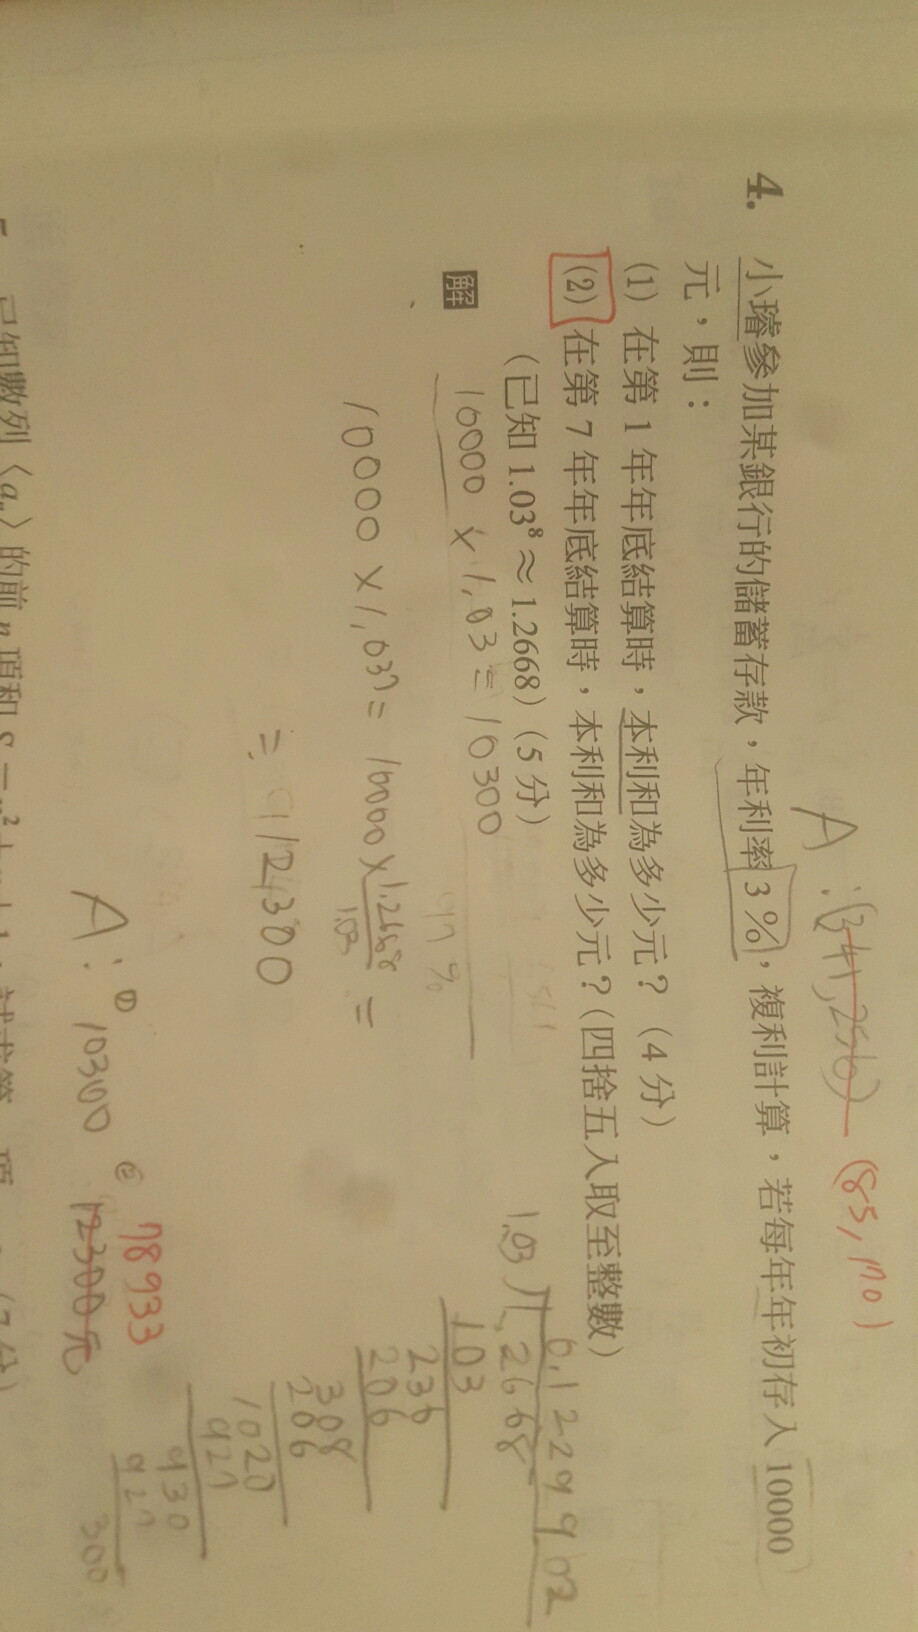 A：(341,256) (85,170)
4. 小璿參加某銀行的儲蓄存款，年利率3%，複利計算，若每年年初存入10000
元，則：
(1) 在第1年年底結算時，本利和為多少元？（4分）
(2) 在第7年年底結算時，本利和為多少元？（四捨五入取至整數）
（已知 1.03⁸ ≈ 1.2668）（5分）
解
10000 × 1.03 = 10300
10000 × 1.03⁷ = 10000 × 1.2668/1.03 =
≒ 12300
A：① 10300 ② 12300元 78933
1.229902
1.03 1.2668
103
236
206
308
206
1020
927
930
927
300